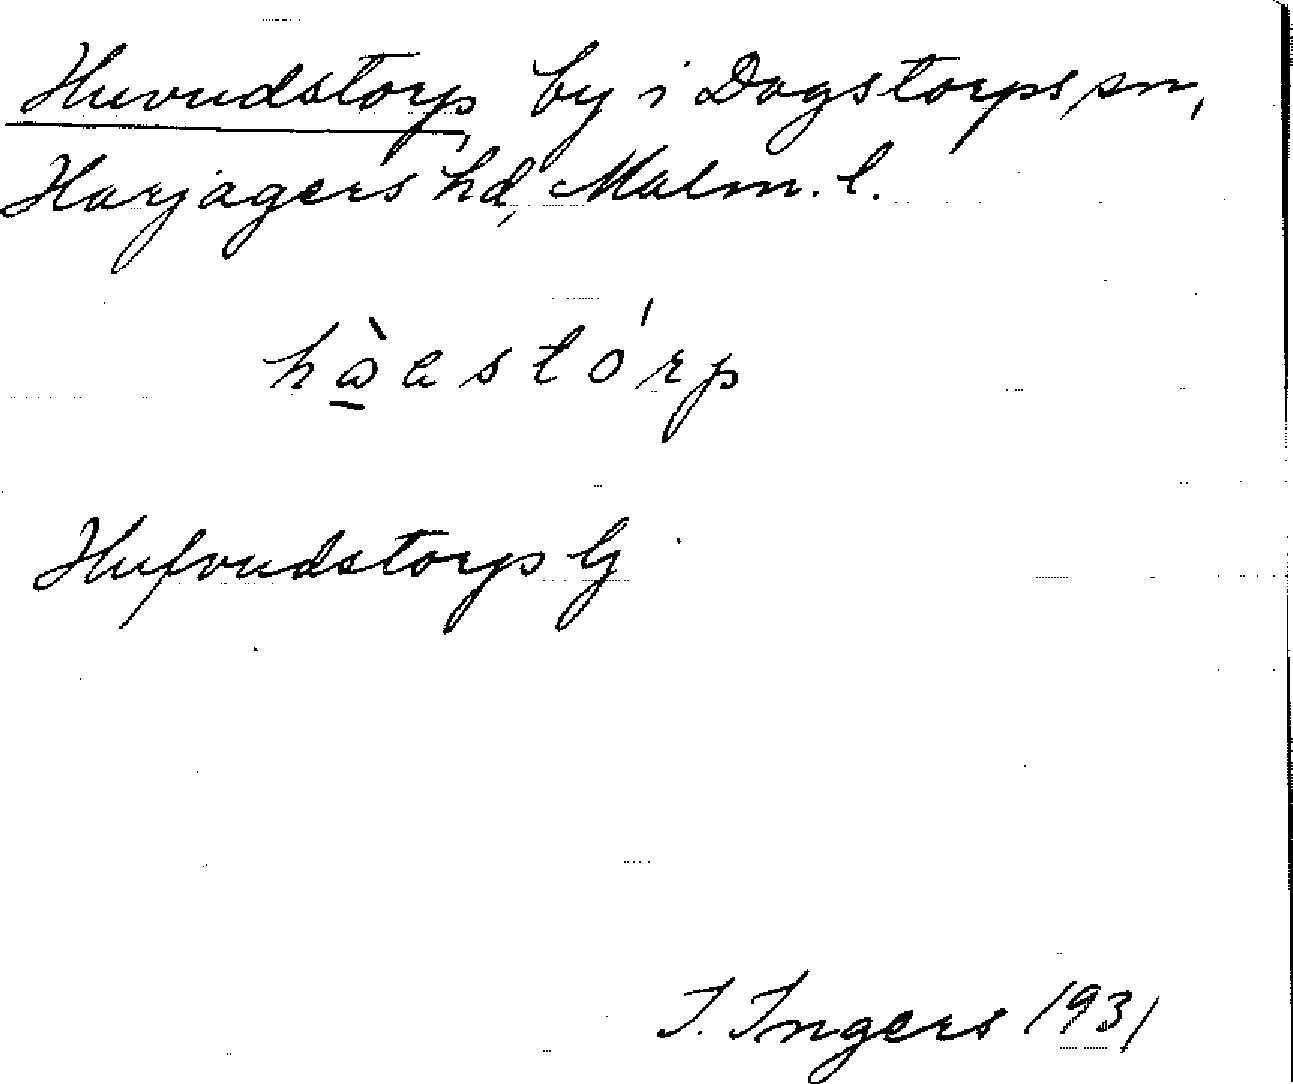 Huvudstorp, by i Dagstorps sn,
Harjagers hd, Malm. l.
hὼ̱estórp
Hufvudstorp G
I. Ingers 1931